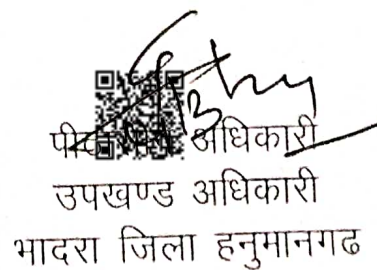 अधिकारी
उपखण्ड अधिकारी
भादरा जिला हनुमानगढ